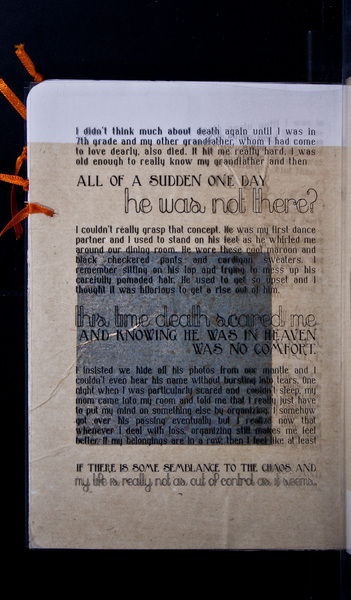 I didn't think much about death again until I was in
7th grade and my other grandfather, whom I had come
to love dearly, also died. It hit me really hard. I was
old enough to really know my grandfather and then
ALL OF A SUDDEN ONE DAY
he was not there?
I couldn't really grasp that concept. He was my first dance
partner and I used to stand on his feet as he whirled me
around our dining room. He wore these cool maroon and
black checkered pants and cardigan sweaters. I
remember sitting on his lap and trying to mess up his
carefully pomaded hair. He used to get so upset and I
thought it was hilarious to get a rise out of him.
this time death scared me
AND KNOWING HE WAS IN HEAVEN
WAS NO COMFORT.
I insisted we hide all his photos from our mantle and I
couldn't even hear his name without bursting into tears. One
night when I was particularly scared and couldn't sleep, my
mom came into my room and told me that I really just have
to put my mind on something else by organizing. I somehow
got over his passing eventually but I realize now that
whenever I deal with loss, organizing still makes me feel
better. If my belongings are in a row then I feel like at least
IF THERE IS SOME SEMBLANCE TO THE CHAOS AND
my life is really not as out of control as it seems.